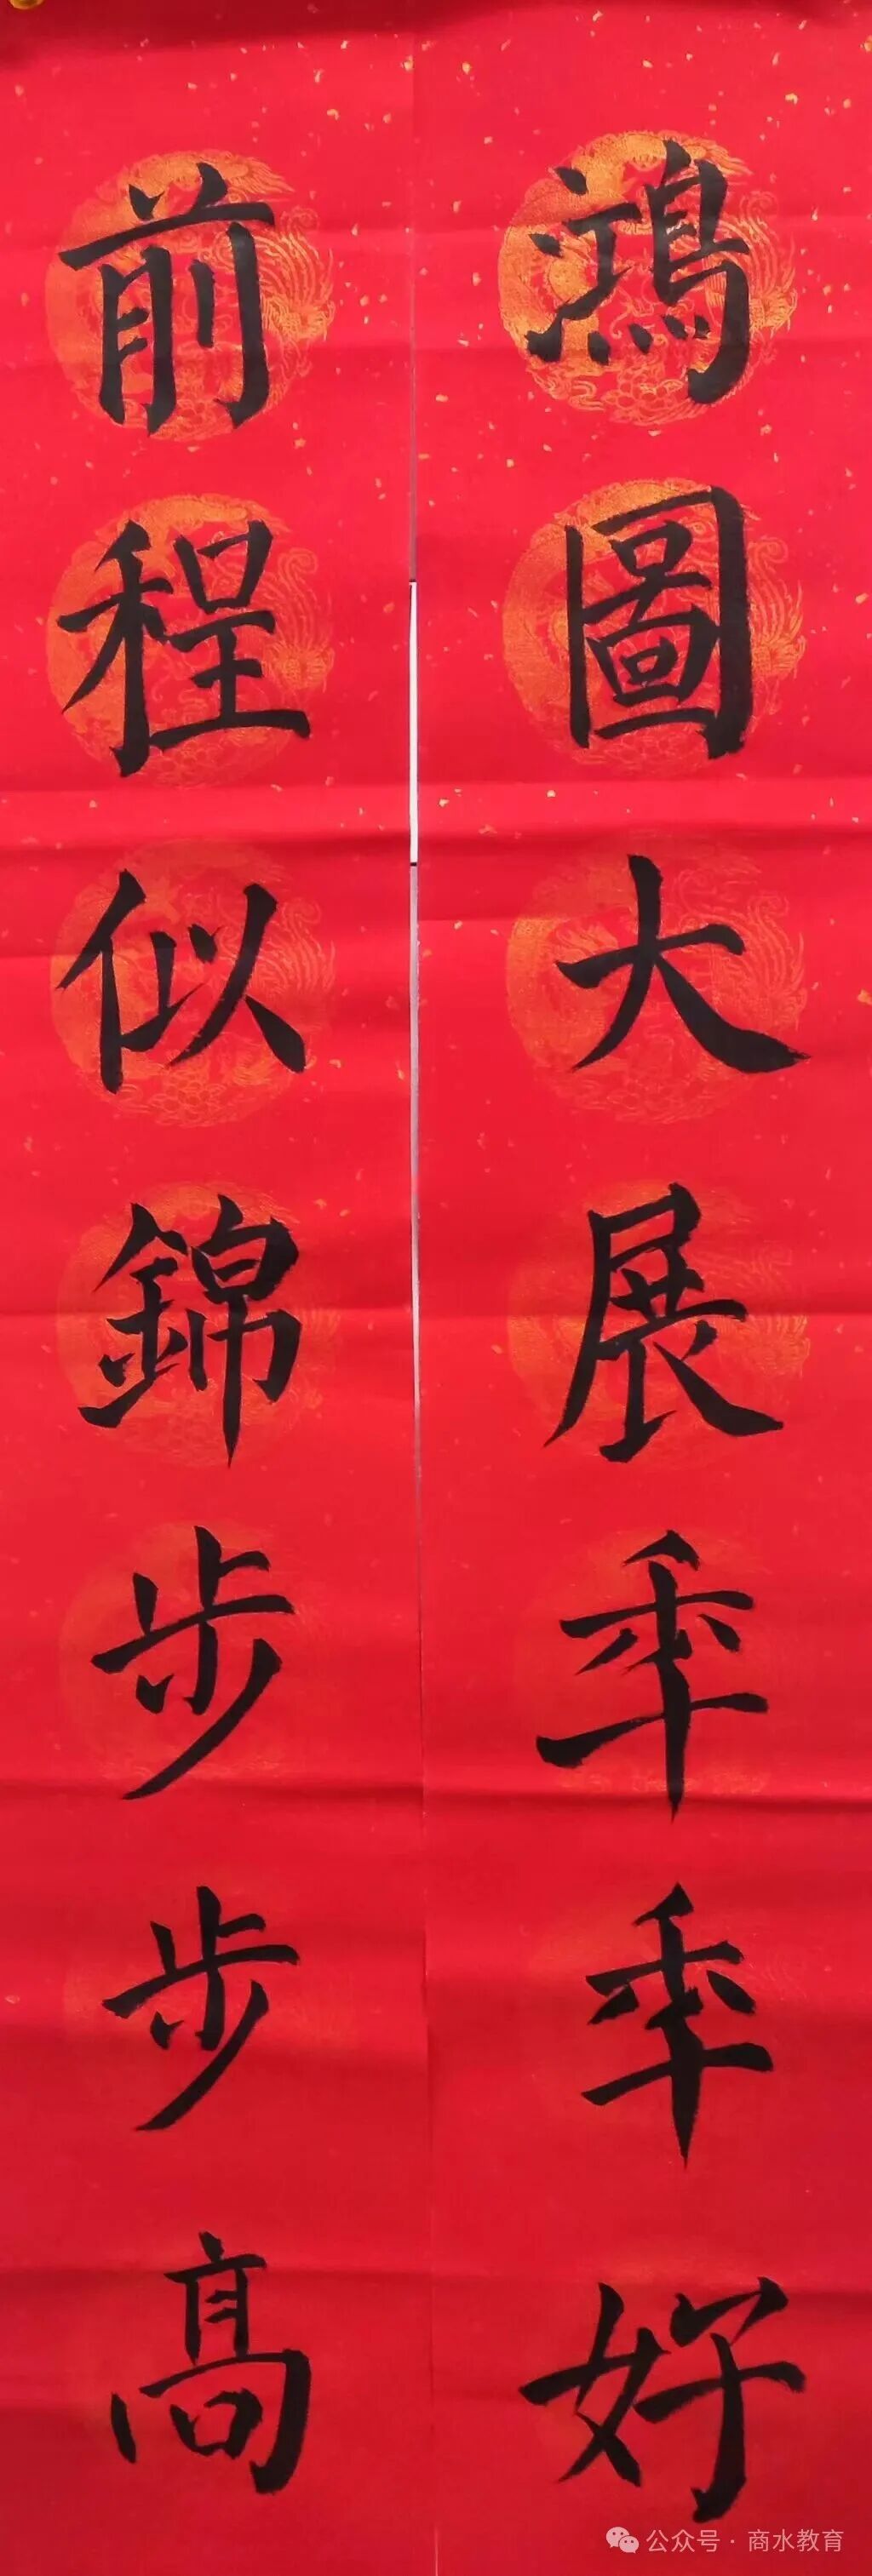 鴻圖大展年年好
前程似錦步步髙
公众号·商水教育